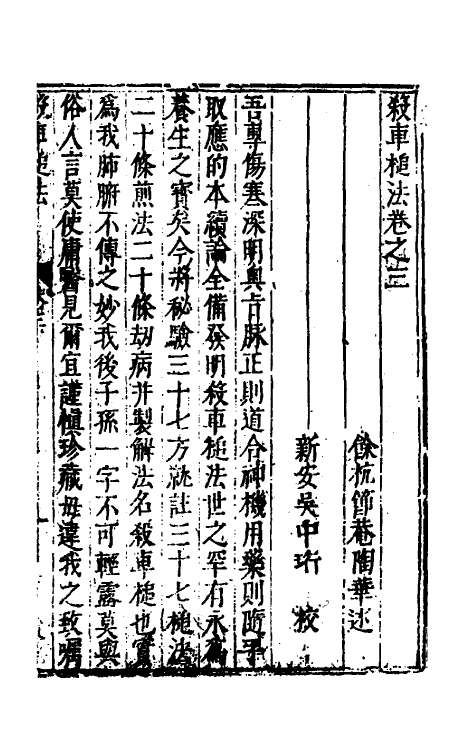 殺車槌法卷之三
餘杭節菴陶華述
新安吳中珩 校
吾專傷寒深明奧旨脉正則道合神機用藥則隨手
取應的本續論全備發明殺車槌法世之罕有永為
養生之寳矣今將秘驗三十七方就註三十七槌法
二十條煎法二十條刼病并製解法名殺車槌也實
爲我肺腑不傳之妙我後子孫一字不可輕露莫與
俗人言莫使庸醫見爾宜謹慎珍藏毋違我之致囑
殺車槌法